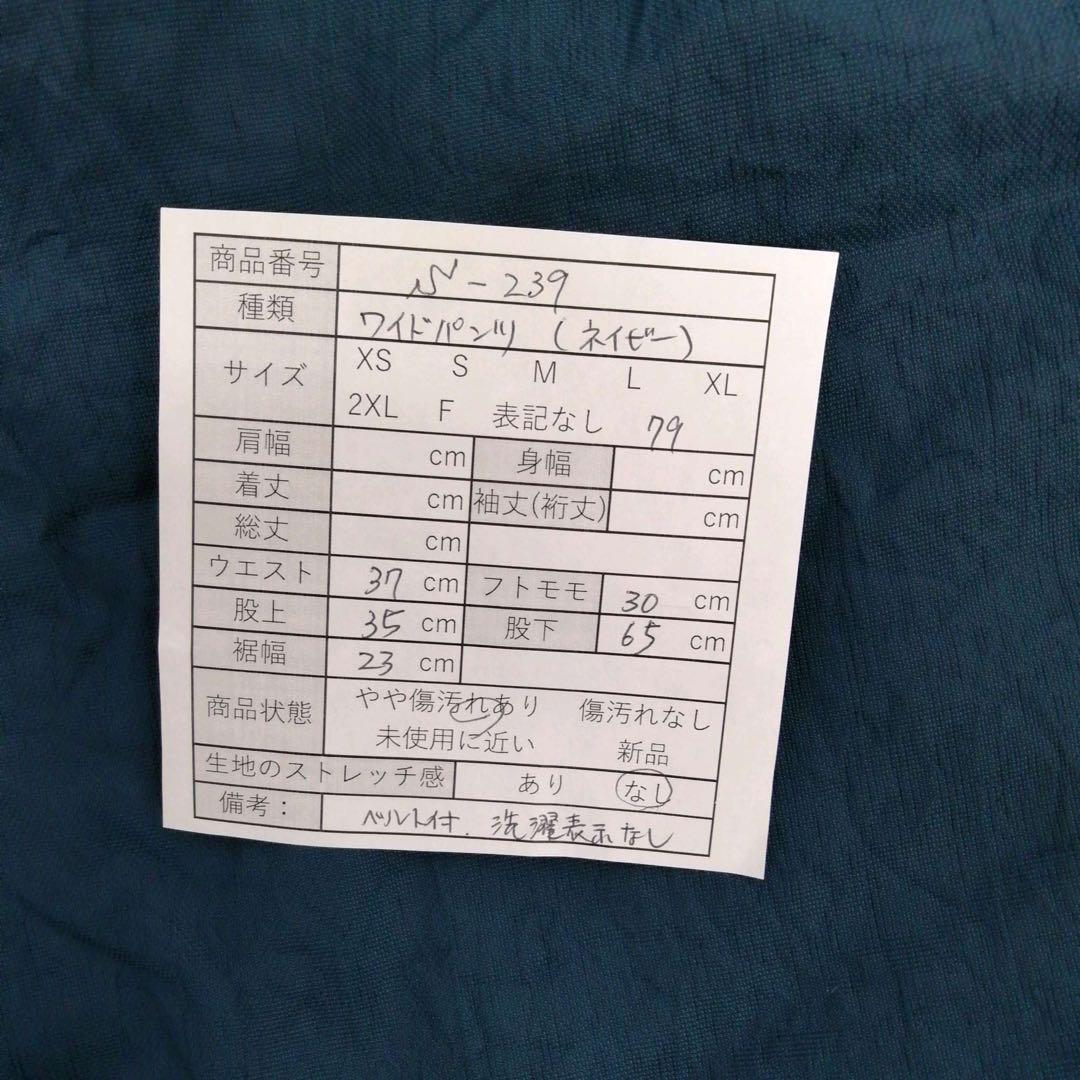 商品番号 N-239
種類 ワイドパンツ (ネイビー)
サイズ XS S M L XL
2XL F 表記なし 79
肩幅 cm 身幅 cm
着丈 cm 袖丈(裄丈) cm
総丈 cm
ウエスト 37 cm フトモモ 30 cm
股上 35 cm 股下 65 cm
裾幅 23 cm
商品状態 やや傷汚れあり 傷汚れなし
未使用に近い 新品
生地のストレッチ感 あり なし
備考: ベルト付. 洗濯表示なし